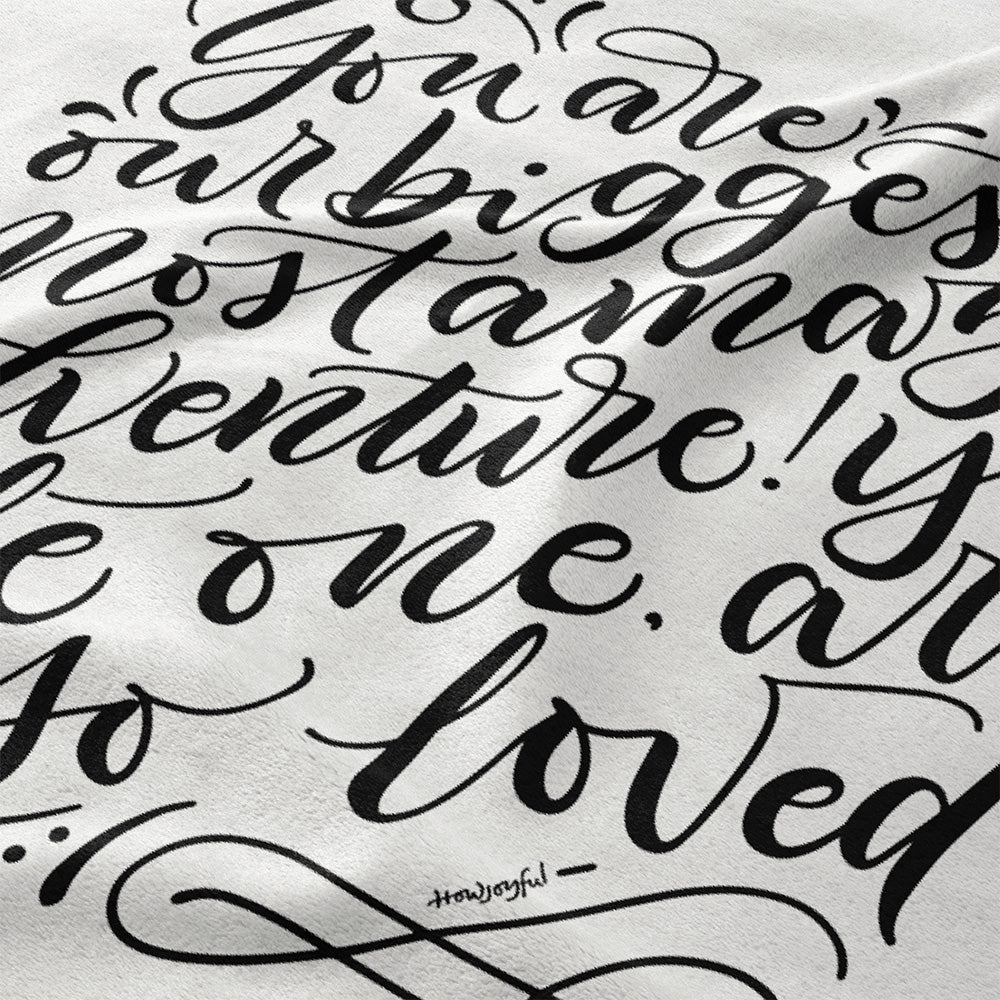 You are
our bigges
most amaz
venture! y
e one. ar
so loved
Howjoyful